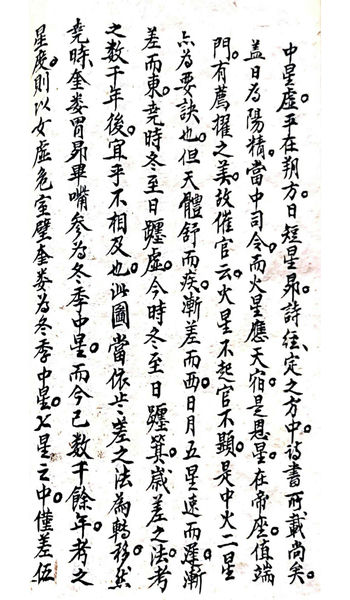 中星虛。平在朔方。日短星昴。詩经、定之方中。诗書所載尚矣。
盖日為陽精。當中司令。而火星應天宿。是恩星。在帝座。值端
門。有薦擢之美。故催官云。火星不起官不顯。是中火二星
亦為要訣也。但天體舒而疾。漸差而西。日月五星速而遲。漸
差而東。堯時冬至日躔虛。今時冬至日躔箕。歲差之法。考
之数千年後。宜乎不相及也。此圖當依歩差之法為轉移。然
堯時。奎娄胃昴畢嘴參為冬季中星。而今已数千餘年。考之
星度。則以女虛危室壁奎娄為冬季中星。七星之中。僅差伍